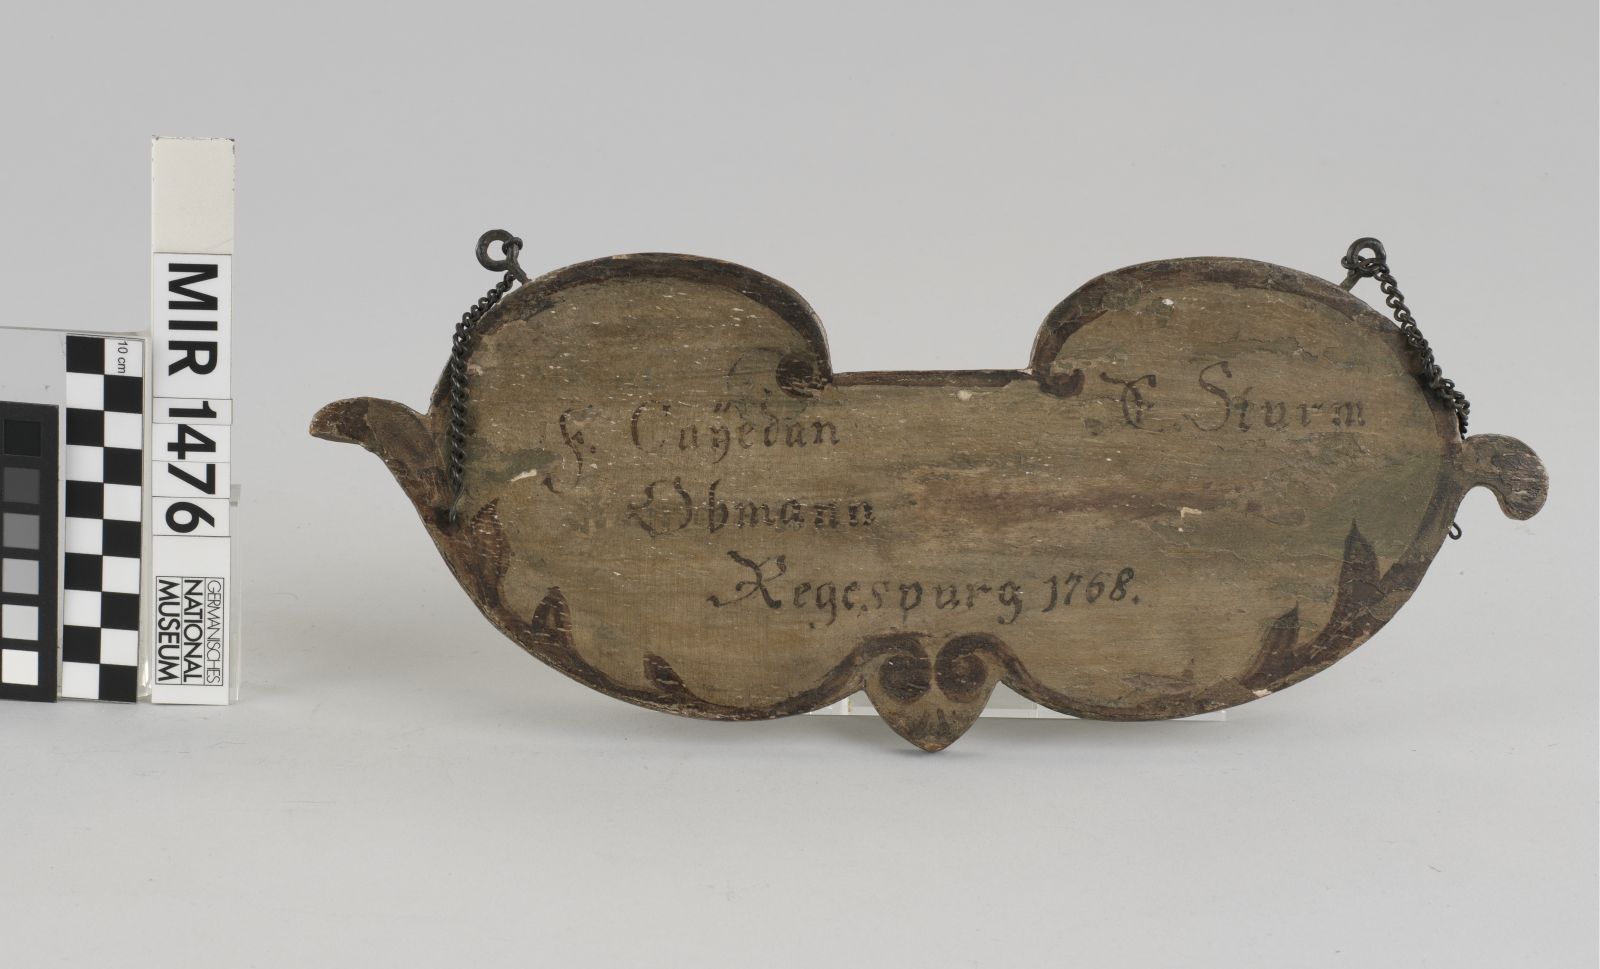 F. Caÿedan
E. Sturm
Obmann
Regespurg 1768.
MIR 1476
GERMANISCHES
NATIONAL
MUSEUM
10 cm